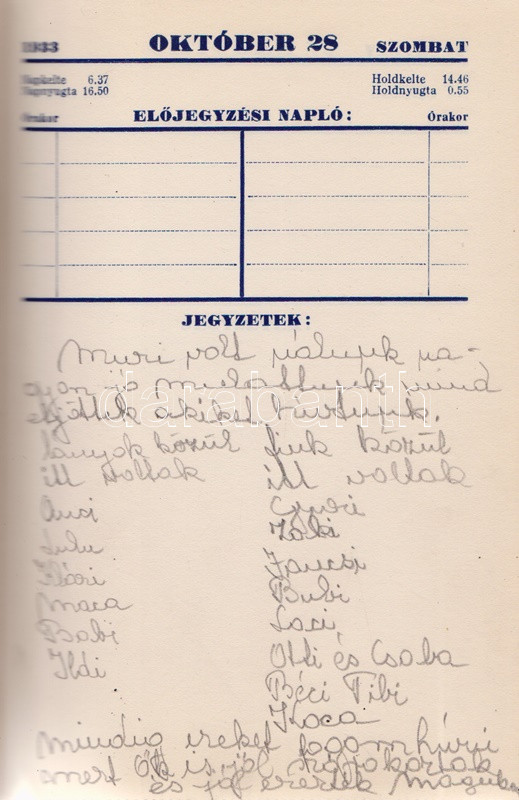 1933 OKTÓBER 28 SZOMBAT
Napkelte 6.37 Holdkelte 14.46
Napnyugta 16.50 Holdnyugta 0.55
Órakor ELŐJEGYZÉSI NAPLÓ: Órakor
JEGYZETEK:
Muri volt nálunk na-
gyon jó mulattunk mind
eljöttek akiket hivtunk.
darabanth
lányok közül fiuk közül
itt voltak itt voltak
Anci Gyuri
Lulu Zoli
Klári Jancsi
Maca Bubi
Babi Laci
Ildi Otti és Csaba
Béci Tibi
Koca
mindig ireket fogom hivni
mert Ők is jól
és jól érezték maguk